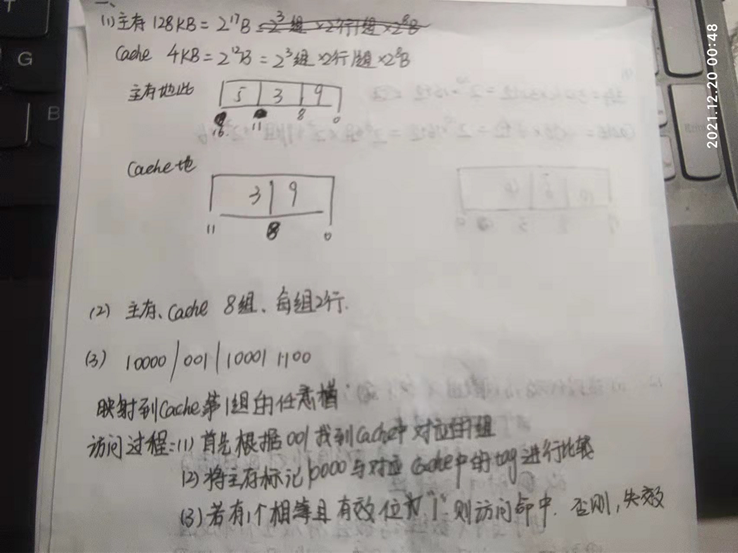 一、
(1) 主存 128KB = 2^17B
Cache 4KB = 2^12B = 2^3组 × 2行/组 × 2^8B
主存地址
5 3 9
16 11 8 0
Cache地
3 9
11 8 0
(2) 主存、Cache 8组、每组2行.
(3) 10000 | 001 | 10001 1100
映射到Cache第1组的任意槽
访问过程:(1) 首先根据001找到Cache中对应的组
(2) 将主存标记10000与对应Cache中的tag进行比较
(3) 若有1个相等且有效位为"1"则访问命中. 否则, 失效
T
G
B
2021.12.20 00:48